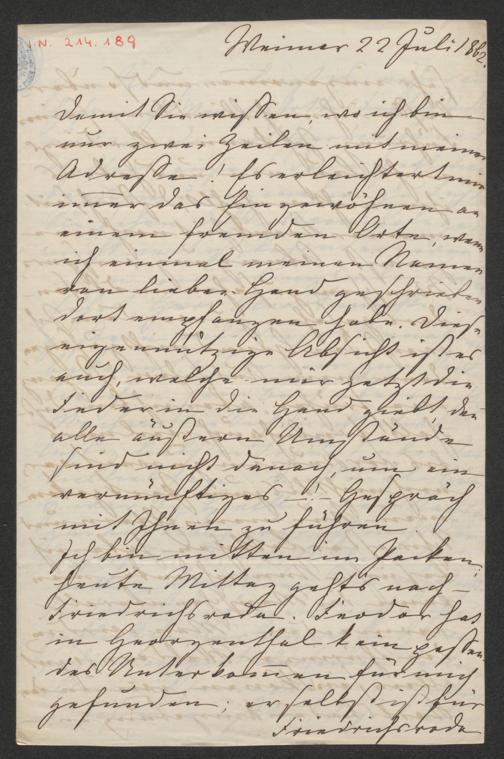 I.N. 214.189
Weimar 22 Juli 1862.
Damit Sie wissen, wo ich bin
nur zwei Zeilen mit meiner
Adresse! Es erleichtert mir
immer das Eingewöhnen an
einem fremden Orte, wenn
ich einmal meinen Namen
von lieber Hand geschrieben
dort empfangen habe. Diese
eigennützige Absicht ist es
auch, welche mir jetzt die
Feder in die Hand giebt, den
alle äußern Umstände
sind nicht danach, um ein
vernünftiges –.– Gespräch
mit Ihnen zu führen.
Ich bin mitten im Packen;
heute Mittag gehts nach
Friedrichsroda. Feodor hat
in Georgenthal kein passen
des Unterkommen für mich
gefunden; er selbst ist für
Friedrichsroda